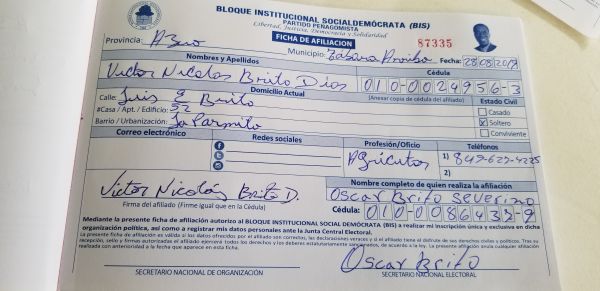 BLOQUE INSTITUCIONAL SOCIALDEMÓCRATA (BIS)
PARTIDO PENAGOMISTA
Libertad, Justicia, Democracia y Solidaridad
FICHA DE AFILIACION
87335
Provincia: Azua Municipio: Tábara Arriba Fecha: 28082019
Nombres y Apellidos Cédula
Victor Nicolas Brito Dios 010-0024956-3
Domicilio Actual (Anexar copia de cédula del afiliado) Estado Civil
Calle: Luis E Brito Casado
#Casa / Apt. / Edificio: 52 X Soltero
Barrio / Urbanización: La Parmito Conviviente
Correo electrónico Redes sociales Profesión/Oficio Teléfonos
Agricultor 1) 849-627-4225
2)
Victor Nicolás Brito D. Nombre completo de quien realiza la afiliación
Oscar Brito Severino
Firma del afiliado (Firme igual que en la Cédula) Cédula: 010-0086432-9
Mediante la presente ficha de afiliación autorizo al BLOQUE INSTITUCIONAL SOCIAL DEMÓCRATA (BIS) a realizar mi inscripción única y exclusiva en dicha
organización política, así como a registrar mis datos personales ante la Junta Central Electoral.
La presente ficha de afiliación es válida si los datos ofrecidos por el afiliado son correctos, las declaraciones veraces y si el afiliado tiene el disfrute de sus derechos civiles y políticos. Tras su
recepción, sello y firmas autorizadas el afiliado ejercerá todos los derechos y los deberes estatutariamente sancionados, de acuerdo a la ley. La presente afiliación anula cualquier afiliación
realizada con anterioridad a la fecha que aparece en esta ficha.
Oscar Brito
SECRETARIO NACIONAL DE ORGANIZACIÓN SECRETARIO NACIONAL ELECTORAL